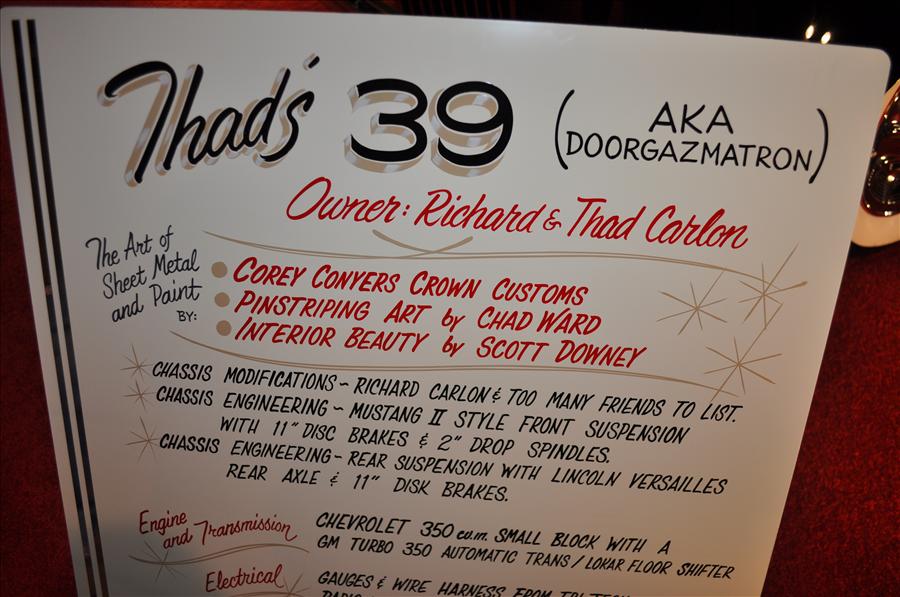 Thad's 39 (AKA DOORGAZMATRON)
Owner: Richard & Thad Carlon
The Art of
Sheet Metal
and Paint
BY:
COREY CONYERS CROWN CUSTOMS
PINSTRIPING ART by CHAD WARD
INTERIOR BEAUTY by SCOTT DOWNEY
CHASSIS MODIFICATIONS~ RICHARD CARLON & TOO MANY FRIENDS TO LIST.
CHASSIS ENGINEERING~ MUSTANG II STYLE FRONT SUSPENSION
WITH 11" DISC BRAKES & 2" DROP SPINDLES.
CHASSIS ENGINEERING~ REAR SUSPENSION WITH LINCOLN VERSAILLES
REAR AXLE & 11" DISK BRAKES.
Engine
and Transmission
CHEVROLET 350 cu.in. SMALL BLOCK WITH A
GM TURBO 350 AUTOMATIC TRANS/LOKAR FLOOR SHIFTER
Electrical
GAUGES & WIRE HARNESS FROM